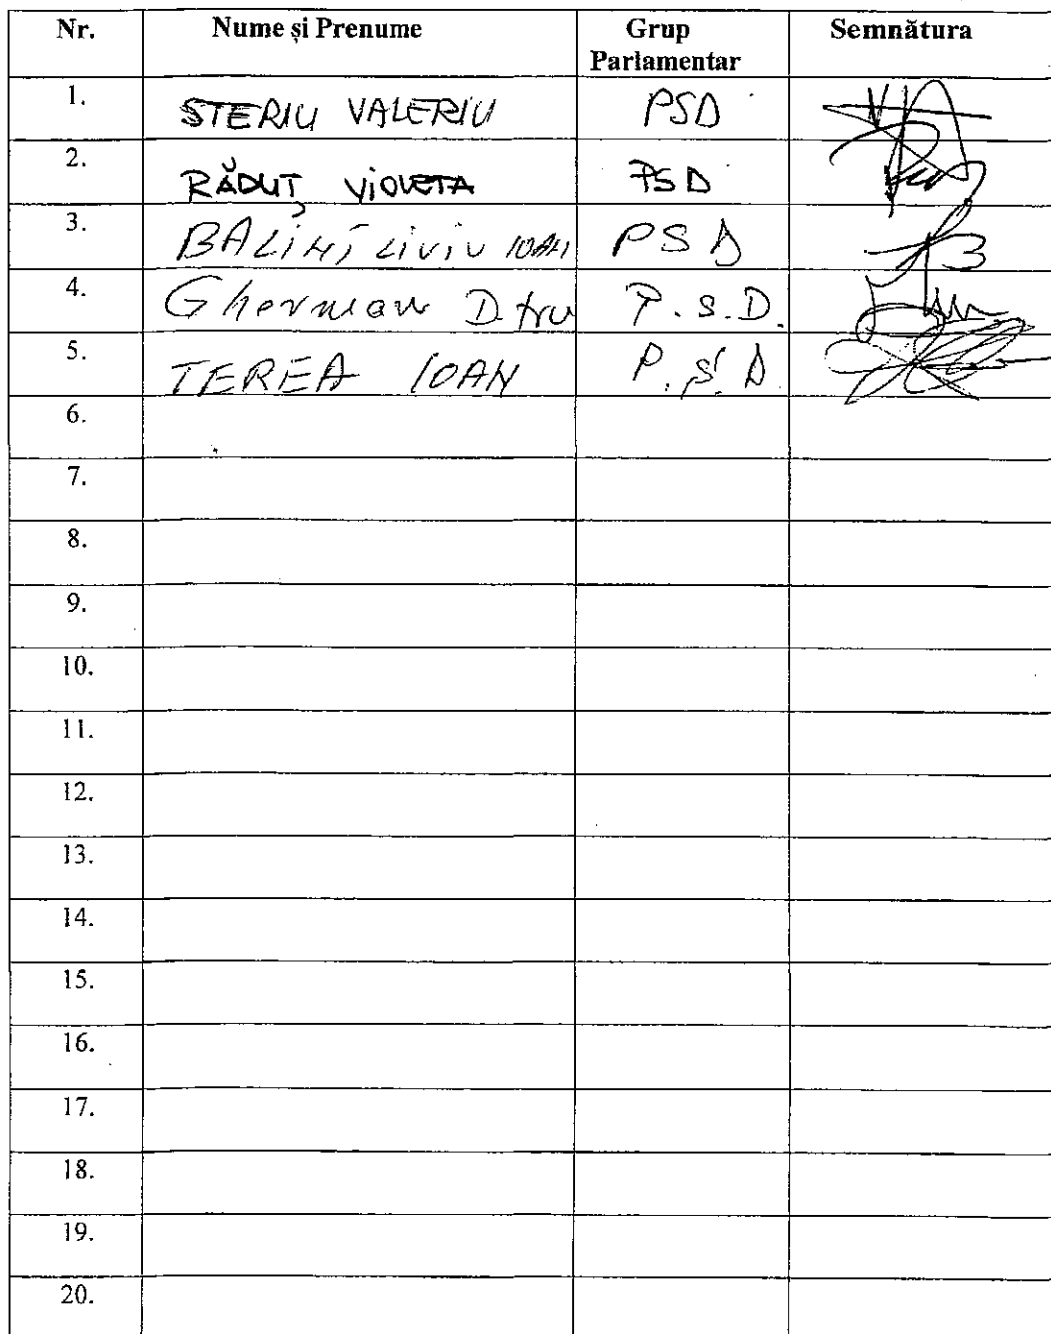 Nr. Nume și Prenume Grup Parlamentar Semnătura
1. STERIU VALERIU PSD
2. RĂDUȚ VIOLETA PSD
3. BALINT LIVIU IOAN PSD
4. Gherman D-tru P.S.D.
5. TEREA IOAN P.S.D
6.
7.
8.
9.
10.
11.
12.
13.
14.
15.
16.
17.
18.
19.
20.